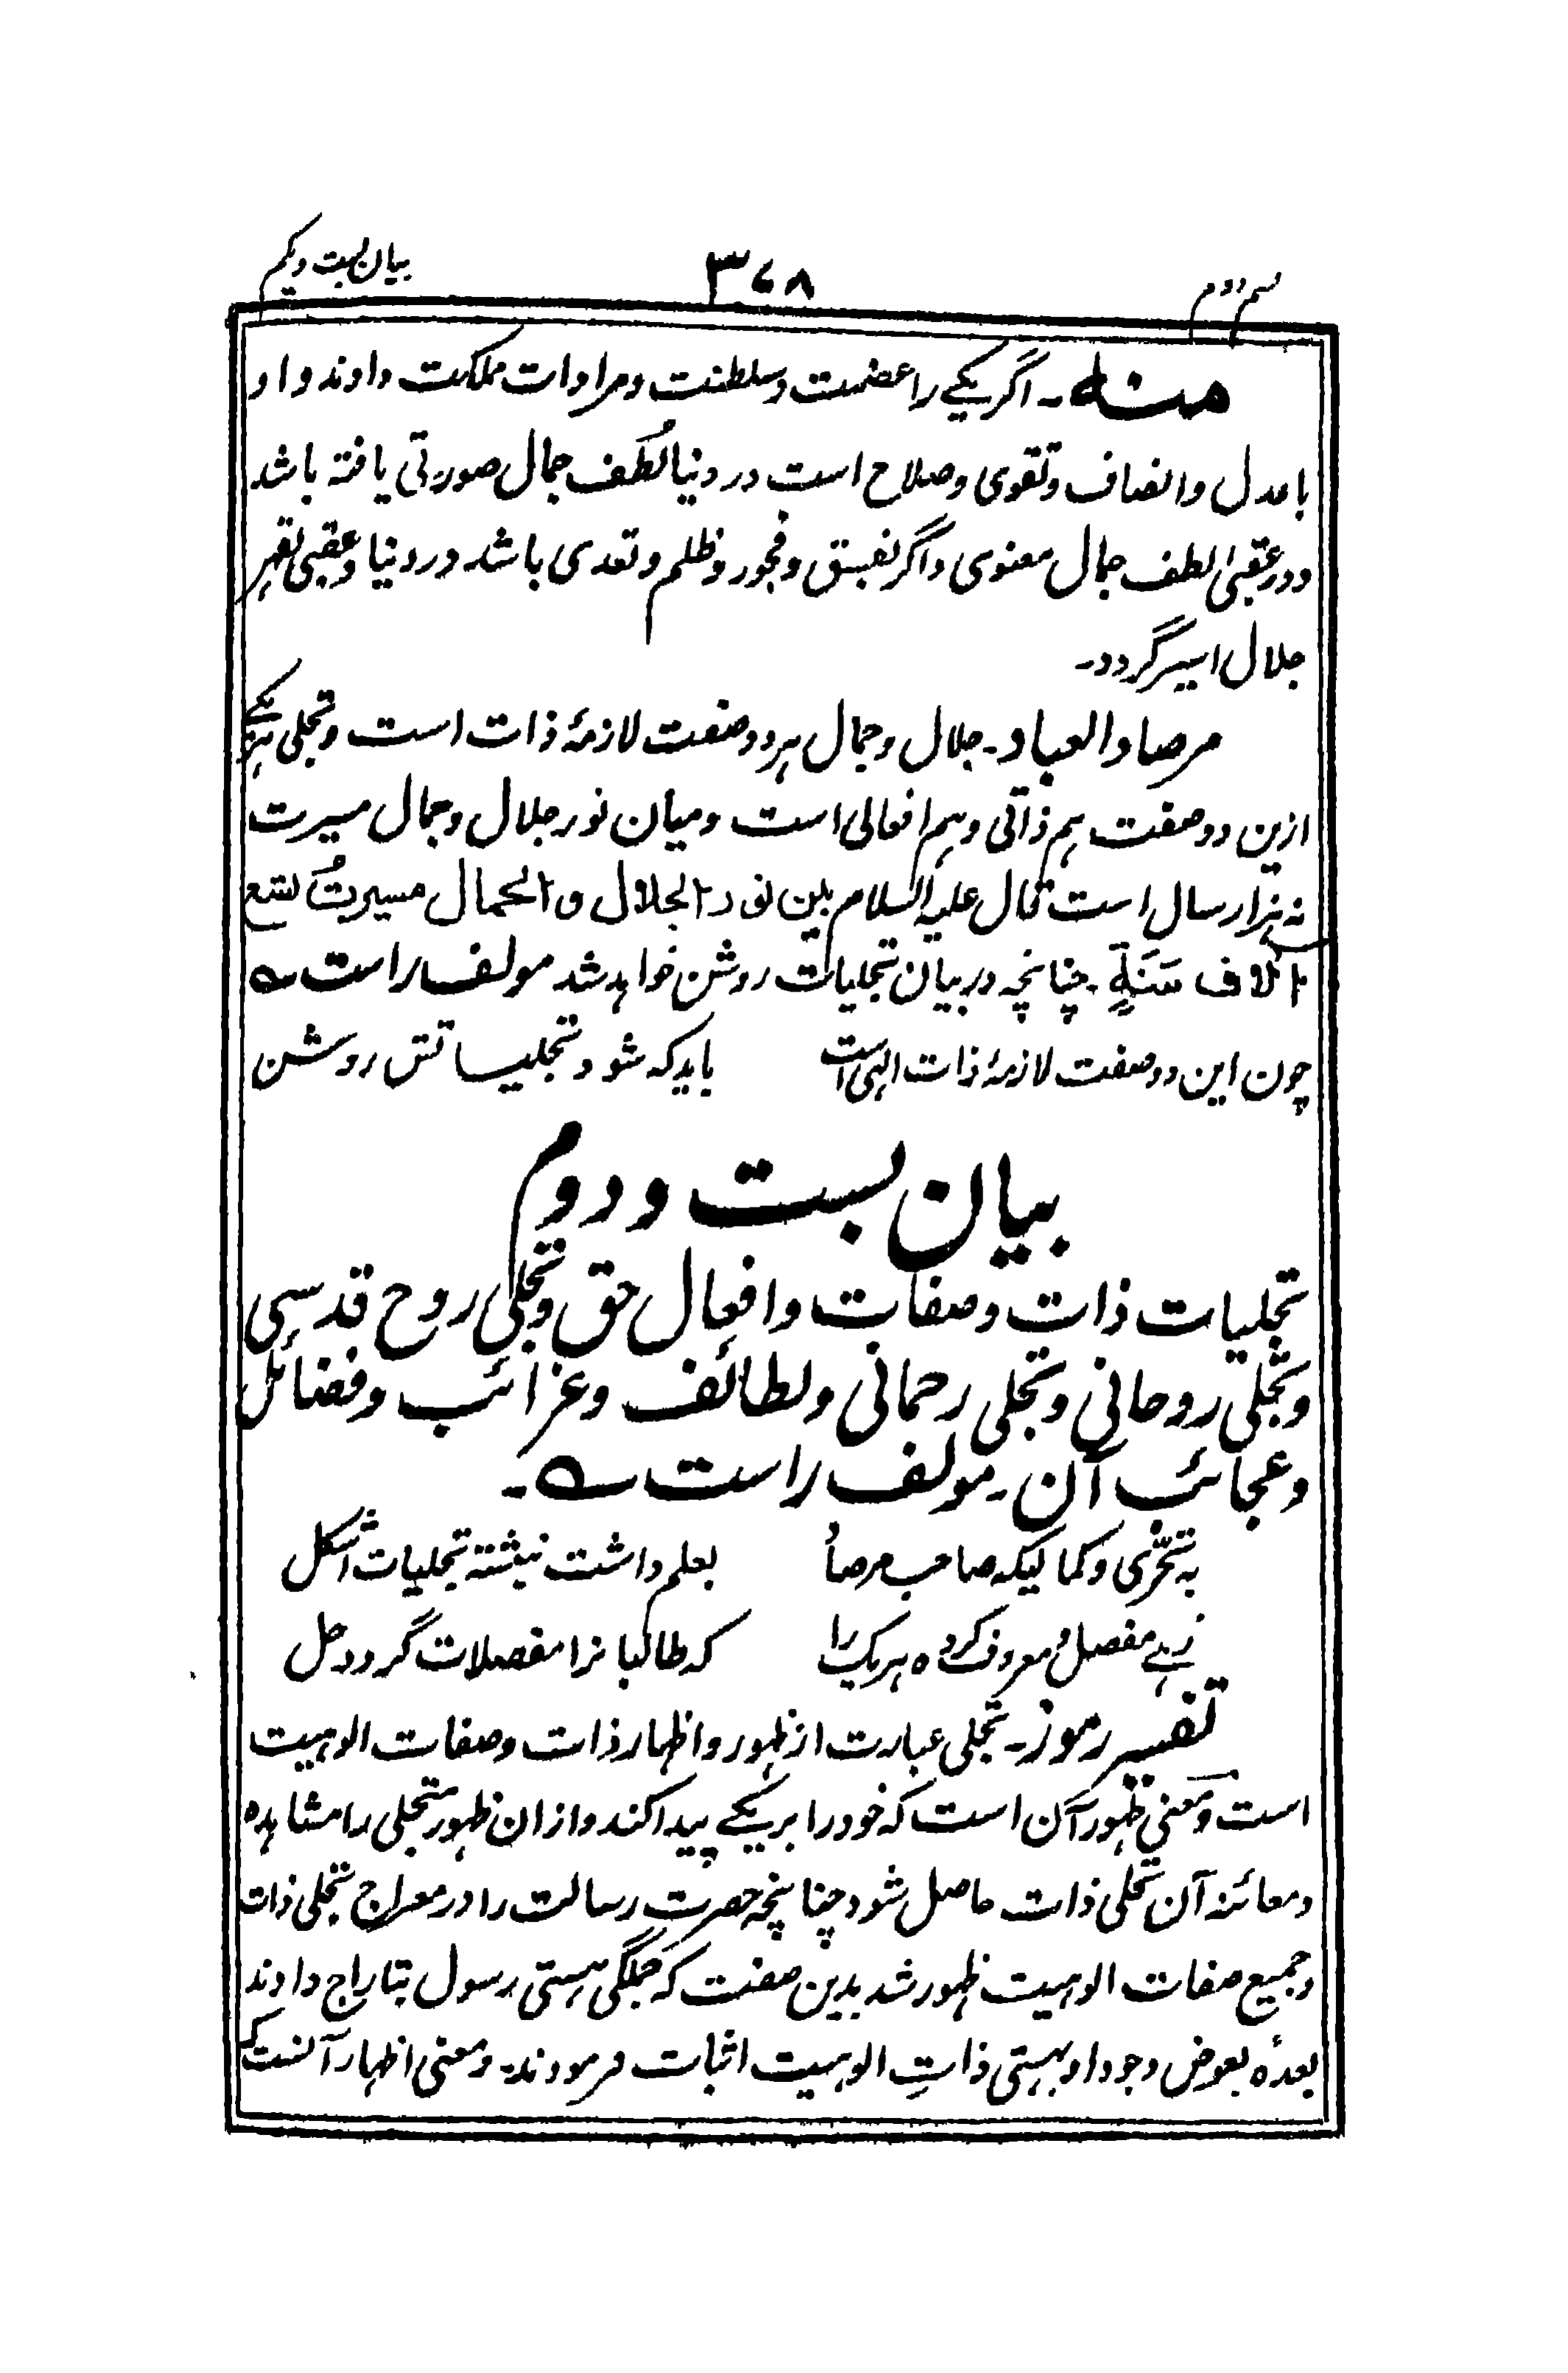 قسم دوم ۳۷۸ بیان بست ویکم
منه ـ اگر یکے را عظمت وسلطنت ومرادات مملکت دادند و او
باعدل وانصاف وتقوی وصلاح است در دنیا لُطف جمال صورتی یافته باشد
ودر عقبیٰ لطف جمال معنوی واگر بفسق وفجور وظلم وتعدی باشد در دنیا وعقبی بقهر
جلال اسیر گردد۔
مرصاد العباد۔ جلال وجمال ہر دو صفت لازمهٔ ذات است وتجلی ہر یکے
ازین دو صفت ہم ذاتی وہم افعالی است ومیان نور جلال وجمال مسیرت
نہ ہزار سال است قال علیہ السلام بین نور الجلال و الجمال مسیرتُ تسع
الآلاف سَنَةٍ۔ چنانچہ در بیان تجلیات روشن خواہد شد مولف راست ؎
چون این دو صفت لازمهٔ ذات الٰہی است باید کہ شود تجلیساتش روشن
بیان بست ودوم
تجلیات ذات وصفات وافعال حق وتجلی روح قدسی
وتجلی روحانی وتجلی رحمانی ولطائف وغرائب وفضائل
وعجائب آن۔ مولف راست ؎۔
بہ تحرّی وکمالیکہ صاحب مرصاد بعلم داشت نبشتہ تجلیات اشکل
زہے مفصل ومعروف کردہ ہریک را کہ طالبانرا مفصلات گردد حل
تفسیر رموز۔ تجلی عبارت از ظہور واظہار ذات وصفات الوہیت
است ومعنی ظہور آن است کہ خود را بر یکے پیدا کند وازان ظہور متجلی را مشاہدہ
ومعائنہ آن تجلی ذات حاصل شود چنانچہ حضرت رسالت را در معراج تجلی ذات
وجمیع صفات الوہیت ظہور شد بدین صفت کہ جملگی ہستی رسول بتاراج دادند
بعدهٔ بعوض وجود او بہستی ذاتِ الوہیت اثبات فرمودند۔ ومعنی اظہار آنست کہ